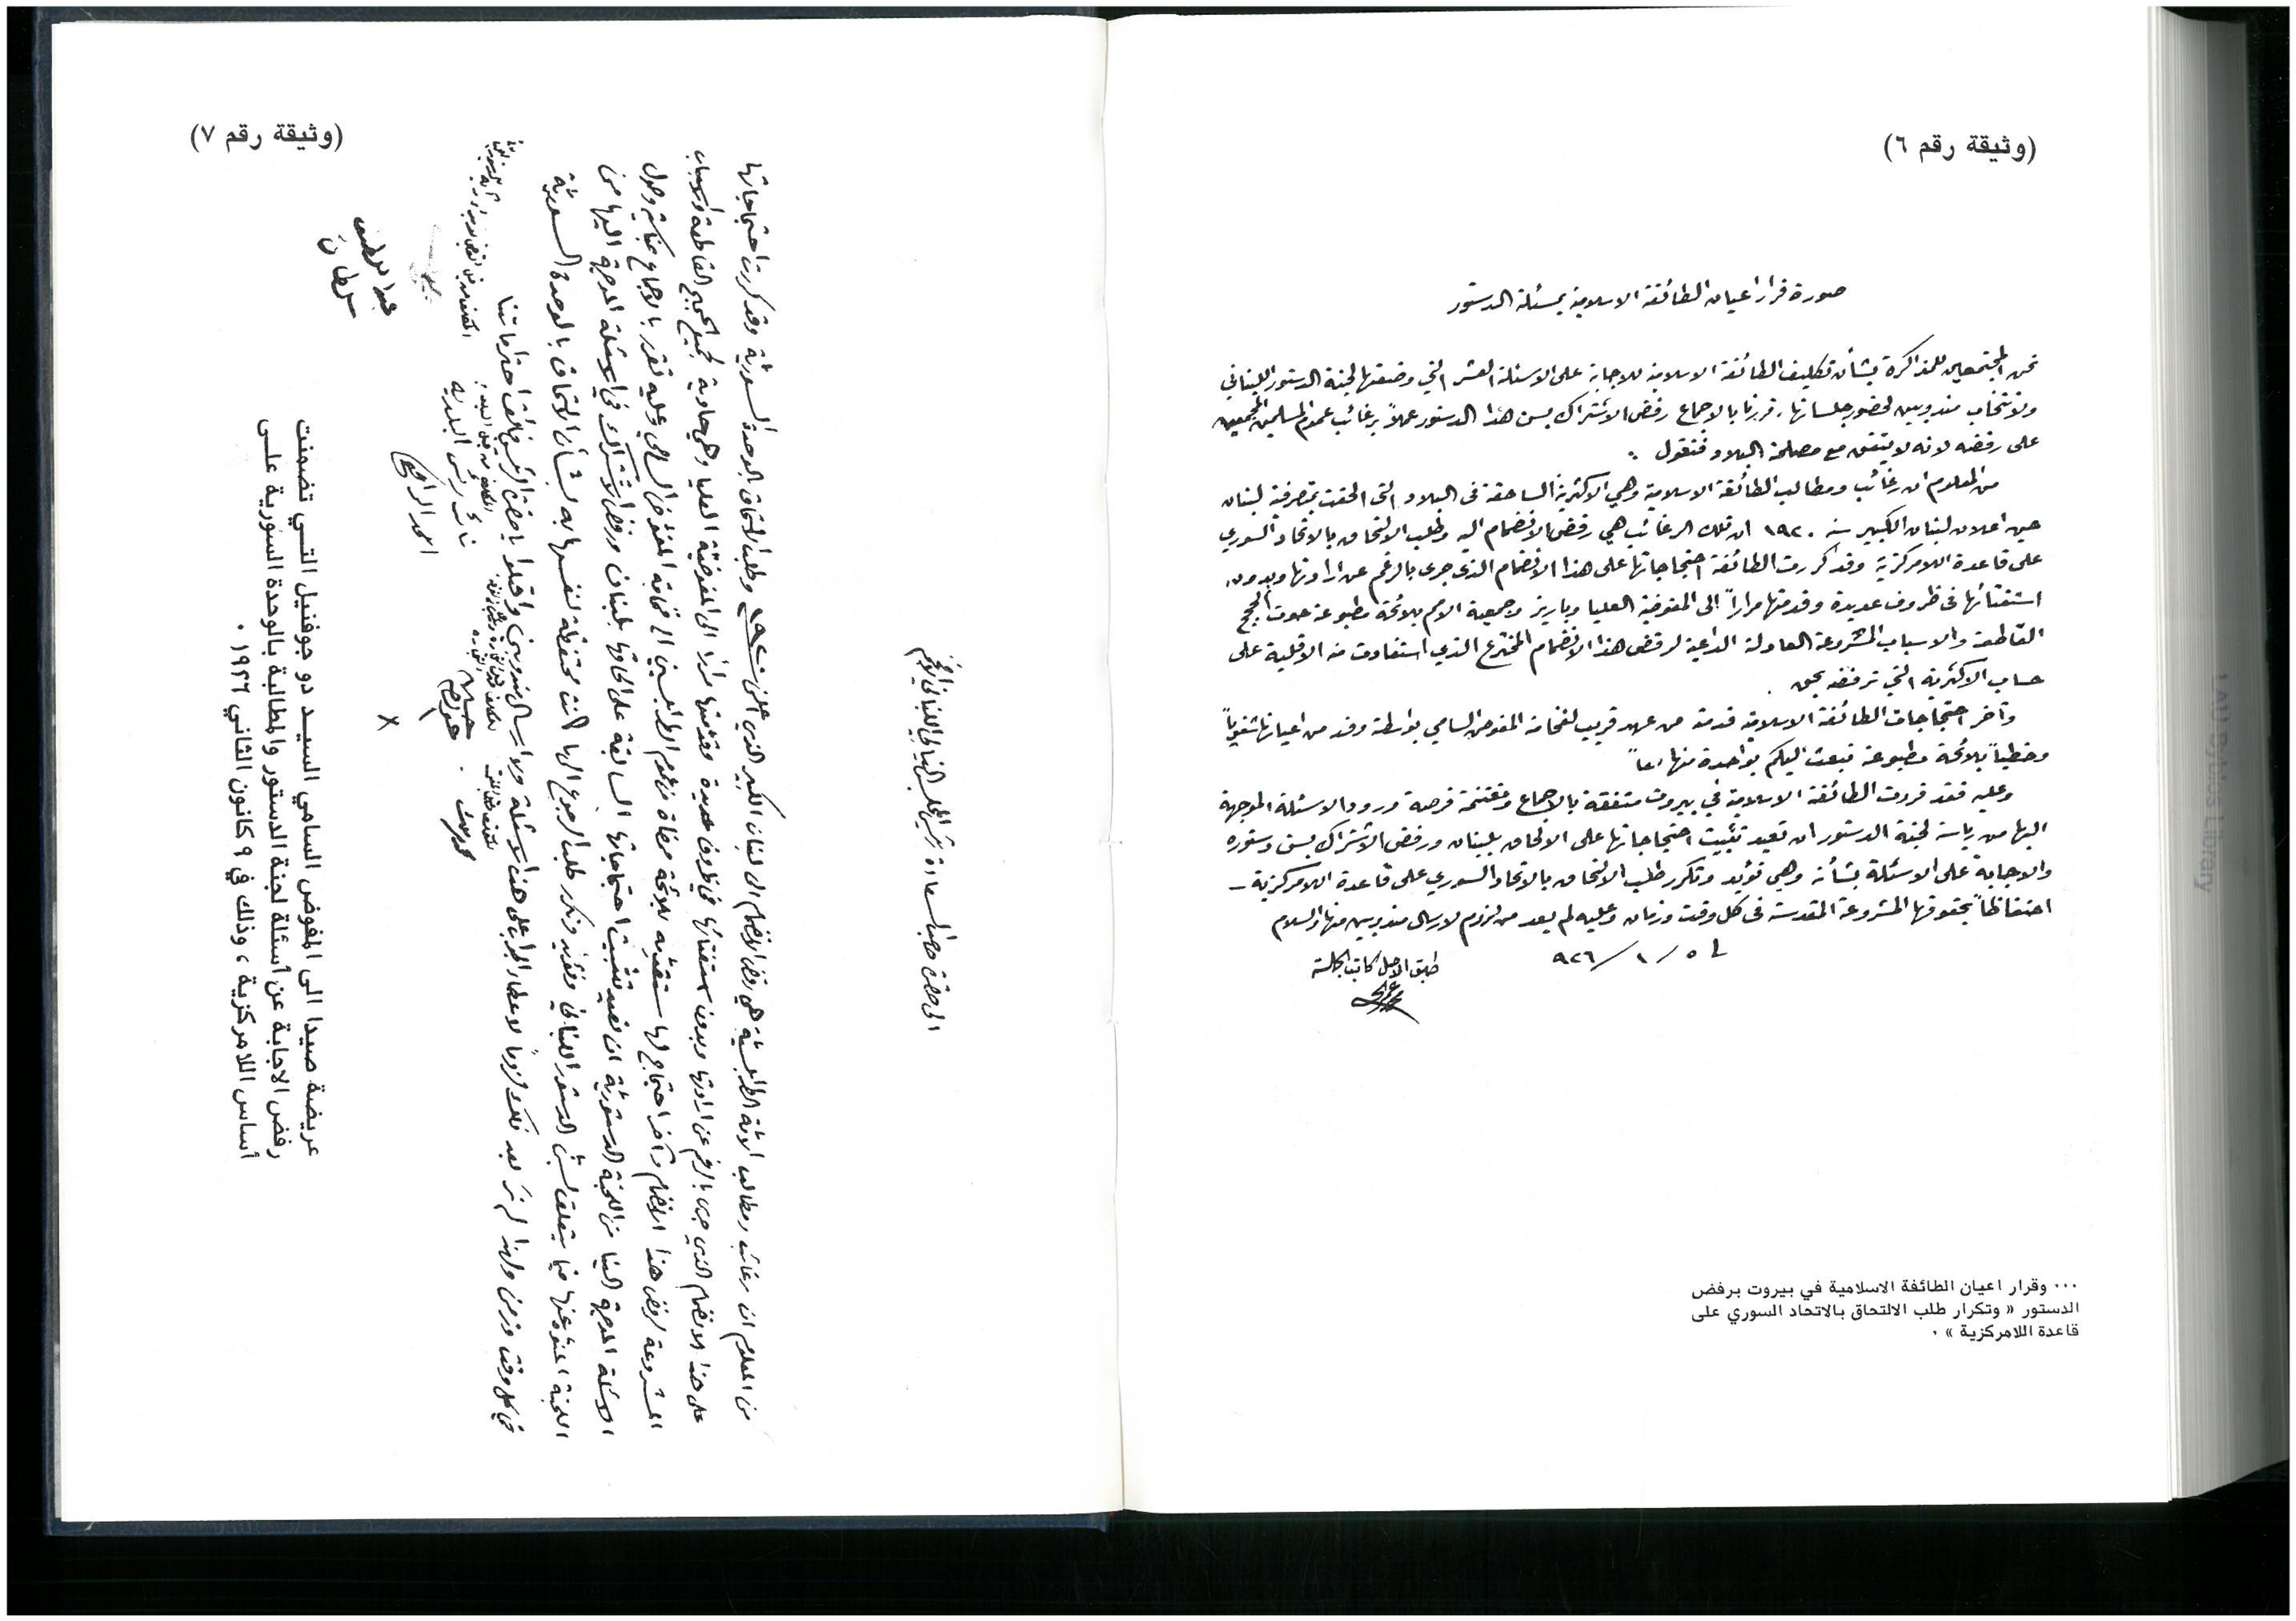 (وثيقة رقم ٦)
صورة قرار اعيان الطائفة الاسلامية بمسئلة الدستور
نحن المجتمعين للمذاكرة بشأن تكليف الطائفة الاسلامية للاجابة على الاسئلة العشر التي وضعتها لجنة الدستور اللبناني
ولانتخاب مندوبين لحضور جلساتها، قررنا بالاجماع رفض الاشتراك بسن هذا الدستور عملاً برغائب عموم المسلمين المجمعين
على رفضه لانه لا يتفق مع مصلحة البلاد فنقول :
من المعلوم ان رغائب ومطالب الطائفة الاسلامية وهي الاكثرية الساحقة في البلاد التي الحقت بمتصرفية لبنان
حين اعلان لبنان الكبير سنة ١٩٢٠ ان تلك الرغائب هي رفض الانضمام اليه وطلب الالتحاق بالاتحاد السوري
على قاعدة اللامركزية وقد كررت الطائفة احتجاجاتها على هذا الانضمام الذي جرى بالرغم عن ارادتها وبدون
استفتائها في ظروف عديدة وقدمتها مراراً الى المفوضية العليا وباريز وجمعية الامم بلائحة مطبوعة حوت الحجج
القاطعة والاسباب المشروعة العادلة الداعية لرفض هذا الانضمام المخترع الذي استفادت منه الاقلية على
حساب الاكثرية التي ترفضه بحق .
وآخر احتجاجات الطائفة الاسلامية قدمته من عهد قريب لفخامة المفوض السامي بواسطة وفد من اعيانها شفوياً
وخطياً بلائحة مطبوعة نبعث اليكم بواحدة منها
وعليه فقد قررت الطائفة الاسلامية في بيروت متفقة بالاجماع ومغتنمة فرصة ورود الاسئلة الموجهة
اليها من رياسة لجنة الدستور ان تعيد تثبيت احتجاجاتها على الالحاق بلبنان ورفض الاشتراك بسن دستوره
والاجابة على الاسئلة بشأنه وهي تؤيد وتكرر طلب الالتحاق بالاتحاد السوري على قاعدة اللامركزية –
احتفاظاً بحقوقها المشروعة المقدسة في كل وقت وزمان وعليه لم يعد من لزوم لارسال مندوبين منها والسلام
في ٥ / ١ / ٩٢٦
طبق الاصل كاتب الجلسة
... وقرار اعيان الطائفة الاسلامية في بيروت برفض
الدستور « وتكرار طلب الالتحاق بالاتحاد السوري على
قاعدة اللامركزية » .
(وثيقة رقم ٧)
الى حضرة صاحب السعادة رئيس المجلس النيابي اللبناني
من المعلوم ان رغائب ومطالب الامة هي رفض الانضمام الى لبنان الكبير الذي وطلب التحاق بالوحدة السورية وقد كررت احتجاجاتها
على هذا الانضمام الذي جرى بالرغم عن ارادتها وبدون استفتائها في ظروف عديدة وقدمتها مراراً الى المفوضية العليا وهي حاوية لجميع الحجج القاطعة والاسباب
المشروعة لرفض هذا الانضمام وآخر احتجاج لها ستقدمه بلائحة ممضاة من عموم الى فخامة المفوض السامي وعليه تقرر بالاجماع وصول
الاسئلة الموجهة الينا من اللجنة الدستورية ان نعيد تثبيت احتجاجاتها السابقة على الحاقها بلبنان ورفض الاشتراك في الاسئلة الموجهة اليها من
اللجنة المنوه عنها فيما يتعلق بسن الدستور اللبناني ونؤيد ونكرر طلب الرجوع اليها محتفظة لنفسها به بشأن الالتحاق بالوحدة السورية
في كل وقت وزمن ولهذا لم نر بعد ذلك لزوماً لاعطاء الجواب على هذه الاسئلة ولا ارسال مندوبين واقبلوا يا حضرة الرئيس فائق احتراماتنا
نائب رئيس البلدية
عريضة صيدا الى المفوض السامي السيد دو جوفنيل التي تضمنت
رفض الاجابة عن أسئلة لجنة الدستور والمطالبة بالوحدة السورية على
أساس اللامركزية ، وذلك في ٩ كانون الثاني ١٩٢٦ .
LAU Byblos Library